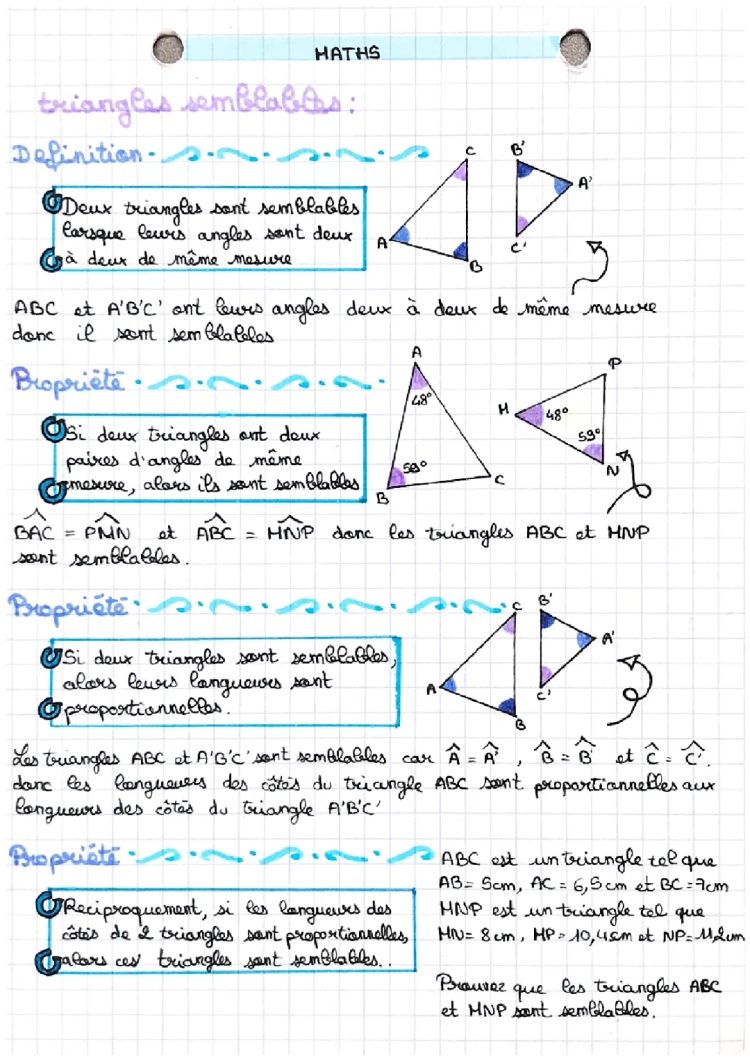 MATHS
triangles semblables :
Définition
Deux triangles sont semblables
lorsque leurs angles sont deux
à deux de même mesure
C
A
B
B'
A'
C'
ABC et A'B'C' ont leurs angles deux à deux de même mesure
donc il sont semblables
Propriété
Si deux triangles ont deux
paires d'angles de même
mesure, alors ils sont semblables
A
48°
59°
B
C
P
M
48°
59°
N
BAC = PMN et ABC = MNP donc les triangles ABC et MNP
sont semblables.
Propriété
Si deux triangles sont semblables,
alors leurs longueurs sont
proportionnelles.
C
A
B
B'
A'
C'
Les triangles ABC et A'B'C' sont semblables car Â = Â', B̂ = B̂' et Ĉ = Ĉ'.
donc les longueurs des côtés du triangle ABC sont proportionnelles aux
longueurs des côtés du triangle A'B'C'
Propriété
Réciproquement, si les longueurs des
côtés de 2 triangles sont proportionnelles,
alors ces triangles sont semblables..
ABC est un triangle tel que
AB= 5cm, AC = 6,5 cm et BC = 7cm
MNP est un triangle tel que
MN= 8 cm, MP = 10,4cm et NP= 11,2cm
Prouvez que les triangles ABC
et MNP sont semblables.